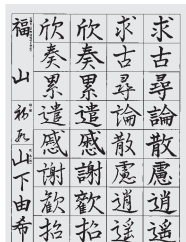 求古尋論散慮逍遥
求古尋論散慮逍遥
欣奏累遣慼謝歡招
欣奏累遣慼謝歡招
福山
山下由希